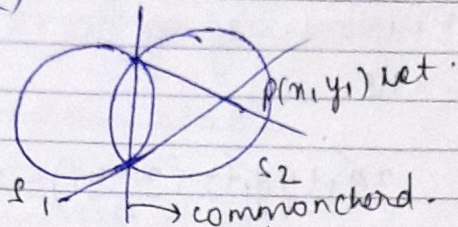 P(x₁ y₁) let.
S₂
S₁
→ common chord.